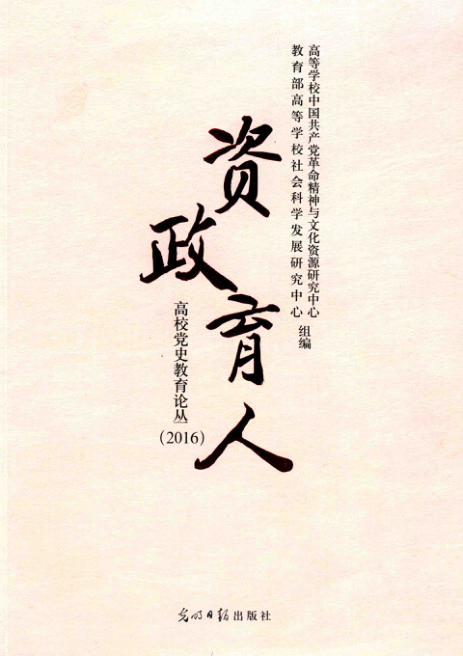 高等学校中国共产党革命精神与文化资源研究中心
教育部高等学校社会科学发展研究中心
组编
资政育人
高校党史教育论丛
(2016)
光明日报出版社